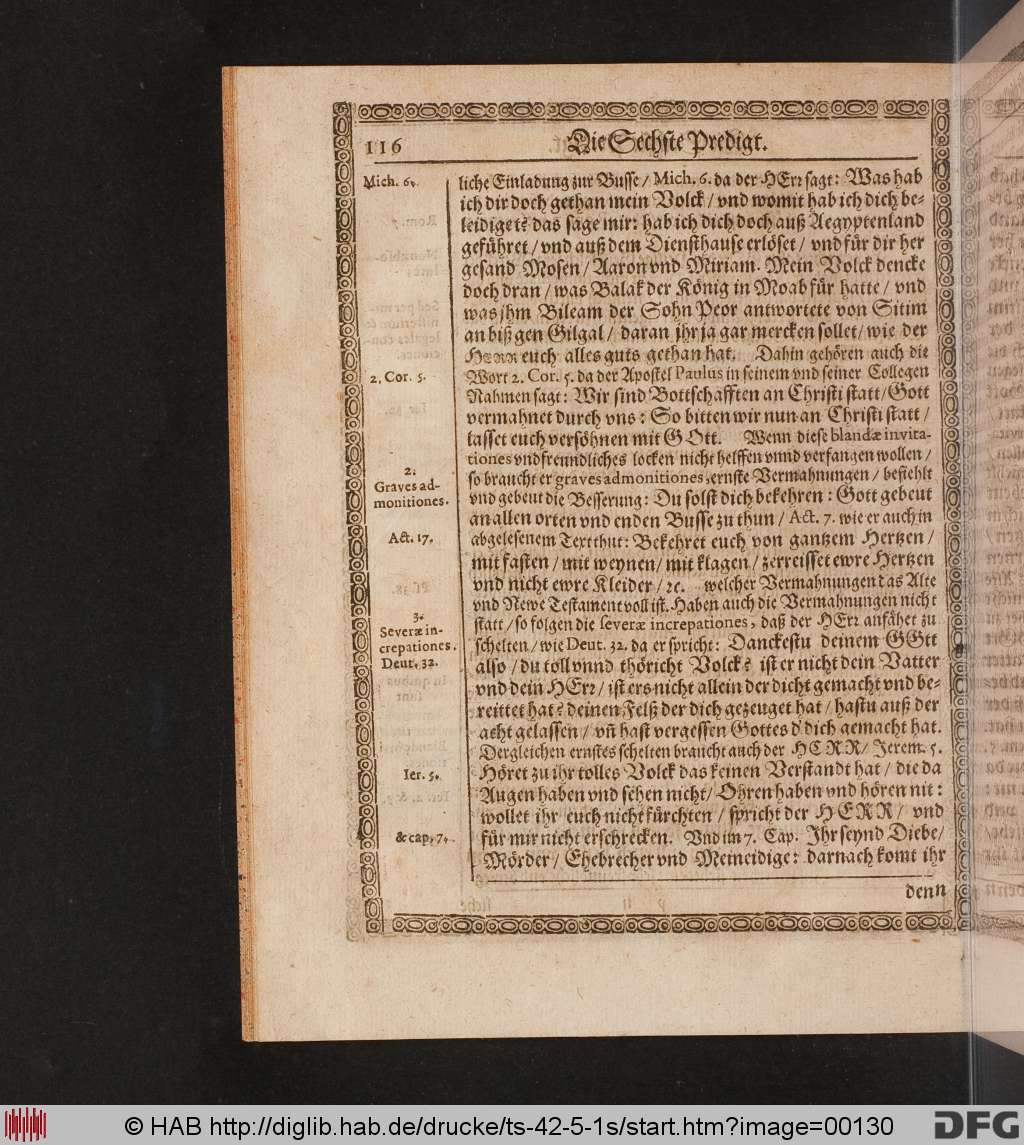 116
Die Sechste Predigt.
Mich. 6.
liche Einladung zur Busse / Mich. 6. da der HErr sagt: Was hab
ich dir doch gethan mein Volck / vnd womit hab ich dich be-
leidiget? das sage mir: hab ich dich doch auß Aegyptenland
geführet / vnd auß dem Diensthause erlöset / vnd für dir her
gesand Mosen / Aaron vnd Miriam. Mein Volck dencke
doch dran / was Balak der König in Moab für hatte / vnd
was jhm Bileam der Sohn Peor antwortete von Sitim
an biß gen Gilgal / daran jhr ja gar mercken sollet / wie der
HERR euch alles guts gethan hat. Dahin gehören auch die
2. Cor. 5.
Wort 2. Cor. 5. da der Apostel Paulus in seinem vnd seiner Collegen
Nahmen sagt: Wir sind Bottschafften an Christi statt / Gott
vermahnet durch vns: So bitten wir nun an Christi statt /
lasset euch versöhnen mit GOtt. Wenn diese blandæ invita-
tiones vnd freundliches locken nicht helffen vnnd verfangen wollen /
2.
Graves ad-
monitiones.
so braucht er graves admonitiones, ernste Vermahnungen / befiehlt
vnd gebeut die Besserung: Du solst dich bekehren: Gott gebeut
an allen orten vnd enden Busse zu thun / Act. 7. wie er auch in
Act. 17.
abgelesenem Text thut: Bekehret euch von gantzem Hertzen /
mit fasten / mit weynen / mit klagen / zerreisset ewre Hertzen
vnd nicht ewre Kleider / ꝛc. welcher Vermahnungen das Alte
vnd Newe Testament voll ist. Haben auch die Vermahnungen nicht
3.
Severæ in-
crepationes.
Deut. 32.
statt / so folgen die severæ increpationes, daß der HErr anfähet zu
schelten / wie Deut. 32. da er spricht: Danckestu deinem GOtt
also / du toll vnnd thöricht Volck? ist er nicht dein Vatter
vnd dein HErr / ist ers nicht allein der dich gemacht vnd be-
reittet hat? deinen Felß der dich gezeuget hat / hastu auß der
acht gelassen / vñ hast vergessen Gottes d' dich gemacht hat.
Dergleichen ernstes schelten braucht auch der HERR / Jerem. 5.
Ier. 5.
Höret zu ihr tolles Volck das keinen Verstandt hat / die da
Augen haben vnd sehen nicht / Ohren haben vnd hören nit:
wollet ihr euch nicht fürchten / spricht der HERR / vnd
& cap. 7.
für mir nicht erschrecken. Vnd im 7. Cap. Ihr seynd Diebe /
Mörder / Ehebrecher vnd Meineidige: darnach komt ihr
denn
© HAB http://diglib.hab.de/drucke/ts-42-5-1s/start.htm?image=00130
DFG